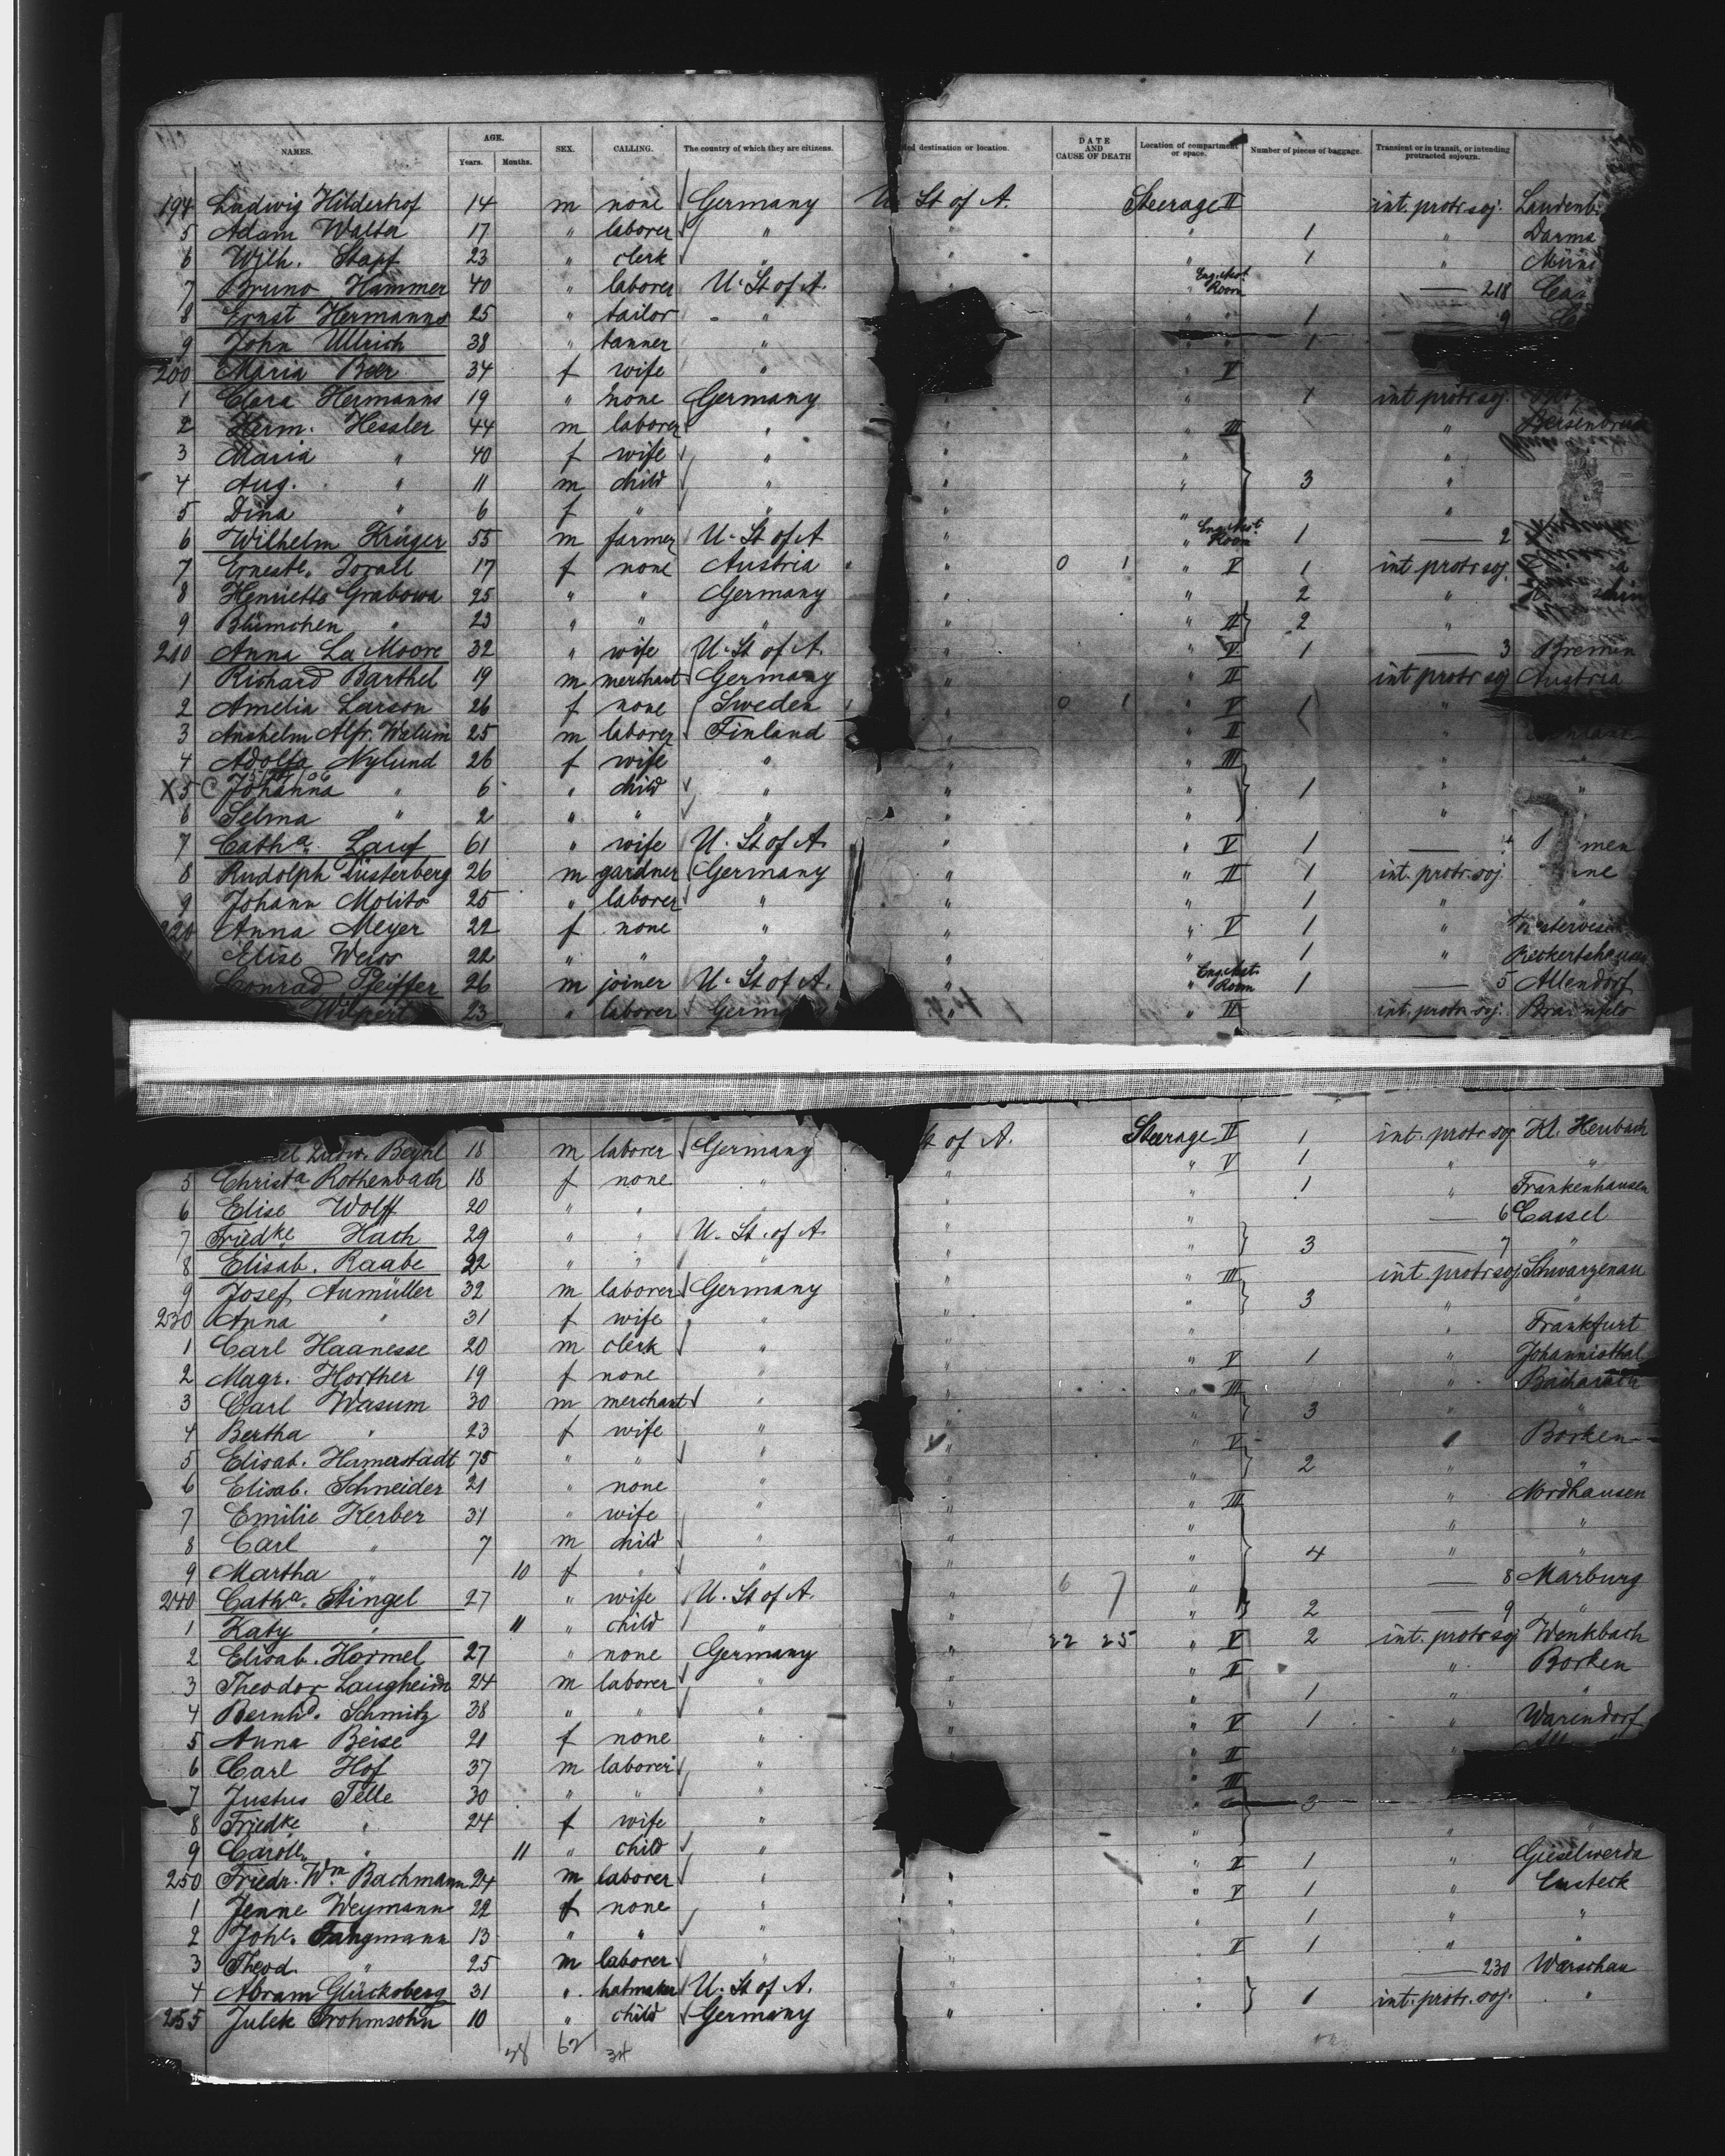 NAMES. AGE. Years. Months. SEX. CALLING. The country of which they are citizens. destination or location. DATE AND CAUSE OF DEATH Location of compartment or space. Number of pieces of baggage. Transient or in transit, or intending protracted sojourn.
194 Ludwig Hilderhof 14 m none Germany U. St of A. Steerage II int. protr. soj. Laudenb
5 Adam Walter 17 " laborer " " " 1 "
6 Wilh. Stapf 23 " clerk " " " 1 "
7 Bruno Hammer 40 " laborer U. St of A. Room 218
8 Ernst Hermanns 25 " tailor " " 1 9
9 John Ullrich 38 " tanner " 1
200 Maria Beer 34 f wife " " V
1 Clara Hermanns 19 " none Germany " " 1 int protr soj.
2 Herm. Hessler 44 m laborer " " " III " Bersenbrück
3 Maria " 40 f wife " " " "
4 Aug. " 11 m child " " " 3 "
5 Dina " 6 f " " " " "
6 Wilhelm Krüger 55 m farmer U. St of A " " Room 1 2
7 Ernest. 17 f none Austria " 0 1 " V 1 int protr soj.
8 Henriette Grabowa 25 " " Germany " " 2 "
9 Blümchen " 23 " " " " " II 2 "
210 Anna La Moore 32 " wife U. St of A. " " V 1 3 Bremen
1 Richard Barthel 19 m merchant Germany " " II int protr soj Austria
2 Amelia Larson 26 f none Sweden " 0 1 " V 1 "
3 Anshelm Alfr. 25 m laborer Finland " " II "
4 Adolfa Nylund 26 f wife " " " III " "
X5 C Johanna " 6 " child " " " 1 " "
6 Selma " 2 " " " " " "
7 Catha. Lauf 61 " wife U. St of A. " " V 1 men
8 Rudolph Düsterberg 26 m gardner Germany " " II 1 int. protr. soj.
9 Johann Molitor 25 " laborer " " " 1 " "
220 Anna Meyer 22 f none " " " V 1 "
Elise Weiss 22 " " " " " 1 "
Conrad Pfeiffer 26 m joiner U. St of A. " " Room 1 5 Allendorf
Wilpert 23 " laborer Germ " " II int. protr. soj.
Ludw. 18 m laborer Germany St of A. Steerage II 1 int. protr soj Kl. Heubach
5 Christa Rothenbach 18 f none " " " V 1 " "
6 Elise Wolff 20 " " " " " 1 " Frankenhausen
7 Friedke. Hach 29 " " U. St. of A. " " 6 Cassel
8 Elisab. Raabe 22 " " " " " 3 7 "
9 Josef Aumüller 32 m laborer Germany " " III int protr soj Schwarzenau
230 Anna " 31 f wife " " " 3 " "
1 Carl Haanesse 20 m clerk " " " " Frankfurt
2 Magr. Horther 19 f none " " " V 1 " Johannisthal
3 Carl Wasum 30 m merchant " " " III " Bacharach
4 Bertha " 23 f wife " " 3 " "
5 Elisab. Hamerstadt 75 " " " " V " Borken
6 Elisab. Schneider 21 " none " " " 2 " "
7 Emilie Kerber 31 " wife " " " III " Nordhausen
8 Carl " 7 m child " " " " "
9 Martha " 10 f " " " " 4 " "
240 Catha. Stingel 27 " wife U. St of A. " 6 7 " 8 Marburg
1 Katy " 11 " child " " " 2 9 "
2 Elisab. Hormel 27 " none Germany " 22 25 " V 2 int. protr soj Wenkbach
3 Theodor Laugheim 24 m laborer " " " II " Borken
4 Bernhd. Schmitz 38 " " " " " 1 " "
5 Anna Beise 21 f none " " " V 1 " Warendorf
6 Carl Hof 37 m laborer " " " II
7 Justus Telle 30 " " " " III
8 Friedke " 24 f wife " " 3
9 Caroll. " 11 child " " " "
250 Friedr. Wm. Bachmann 24 m laborer " " " II 1 " Gieselwerda
1 Jenne Weymann 22 f none " " " V 1 " Emsteck
2 Johe. Tangmann 13 " " " " " 1 " "
3 Theod. " 25 m laborer " " " II 1 " "
4 Abram Glücksberg 31 " hatmaker U. St of A. " " 230 Warschau
255 Julek Frohmsohn 10 " child Germany " " 1 int. protr. soj. "
28 62 34